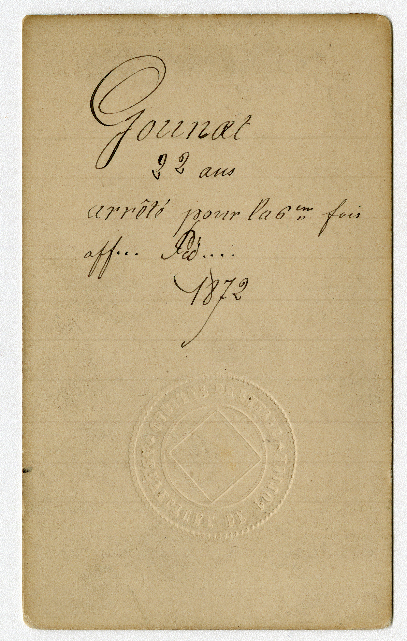 Gounet
22 ans
arrêté pour la 6em fois
off... Péd....
1872